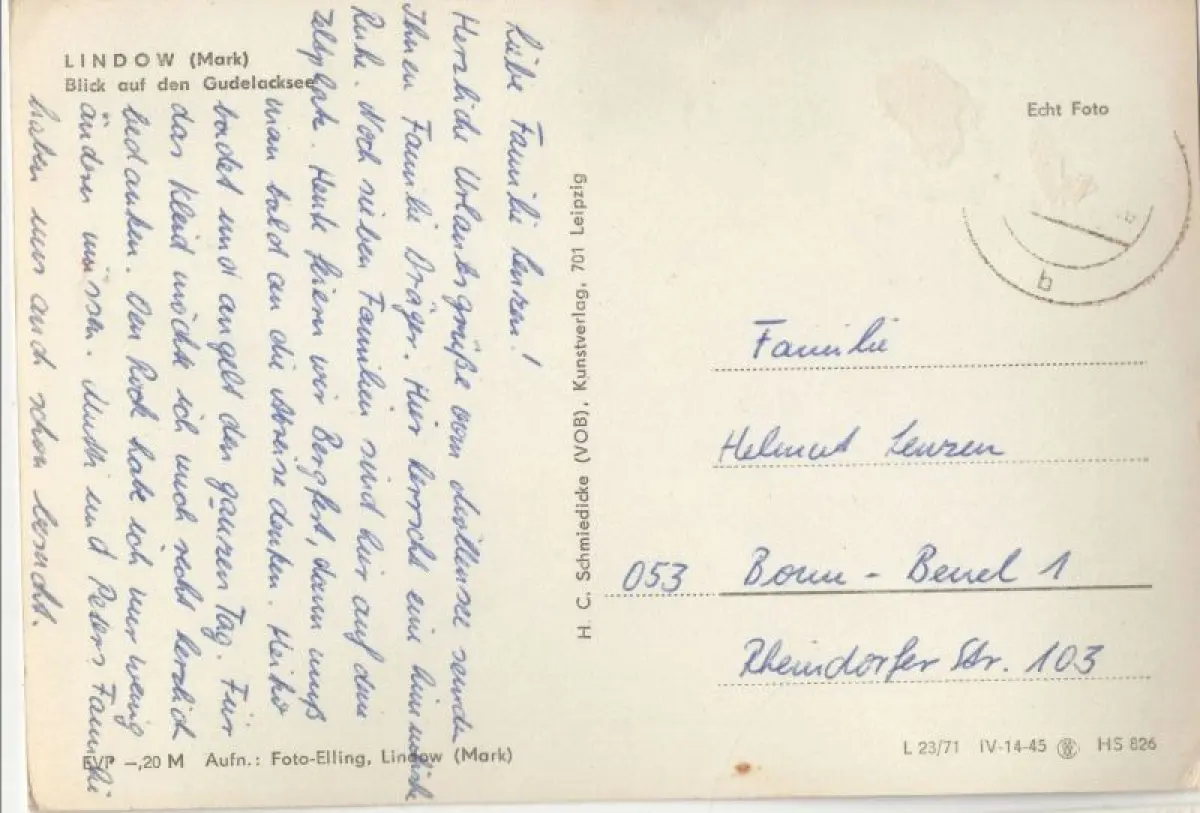 LINDOW (Mark)
Blick auf den Gudelacksee
Liebe Familie Lenzen!
Herzliche Urlaubsgrüße vom Möllensee sendet
Ihnen Familie Dräger. Hier herrscht eine himmlische
Ruhe. Noch sieben Familien sind hier auf dem
Zeltplatz. Heute feiern wir Bergfest, dann muß
man bald an die Abreise denken. Heiko
badet und angelt den ganzen Tag. Für
das Kleid möchte ich mich recht herzlich
bedanken. Den Rock habe ich nur wenig
ändern müssen. Mutti und Peters Familie
haben uns auch schon besucht.
EVP –,20 M Aufn.: Foto-Elling, Lindow (Mark)
H. C. Schmiedicke (VOB), Kunstverlag, 701 Leipzig
Echt Foto
b
Familie
Helmut Lenzen
053 Bonn - Beuel 1
Rheindorfer Str. 103
L 23/71 IV-14-45 HS 826